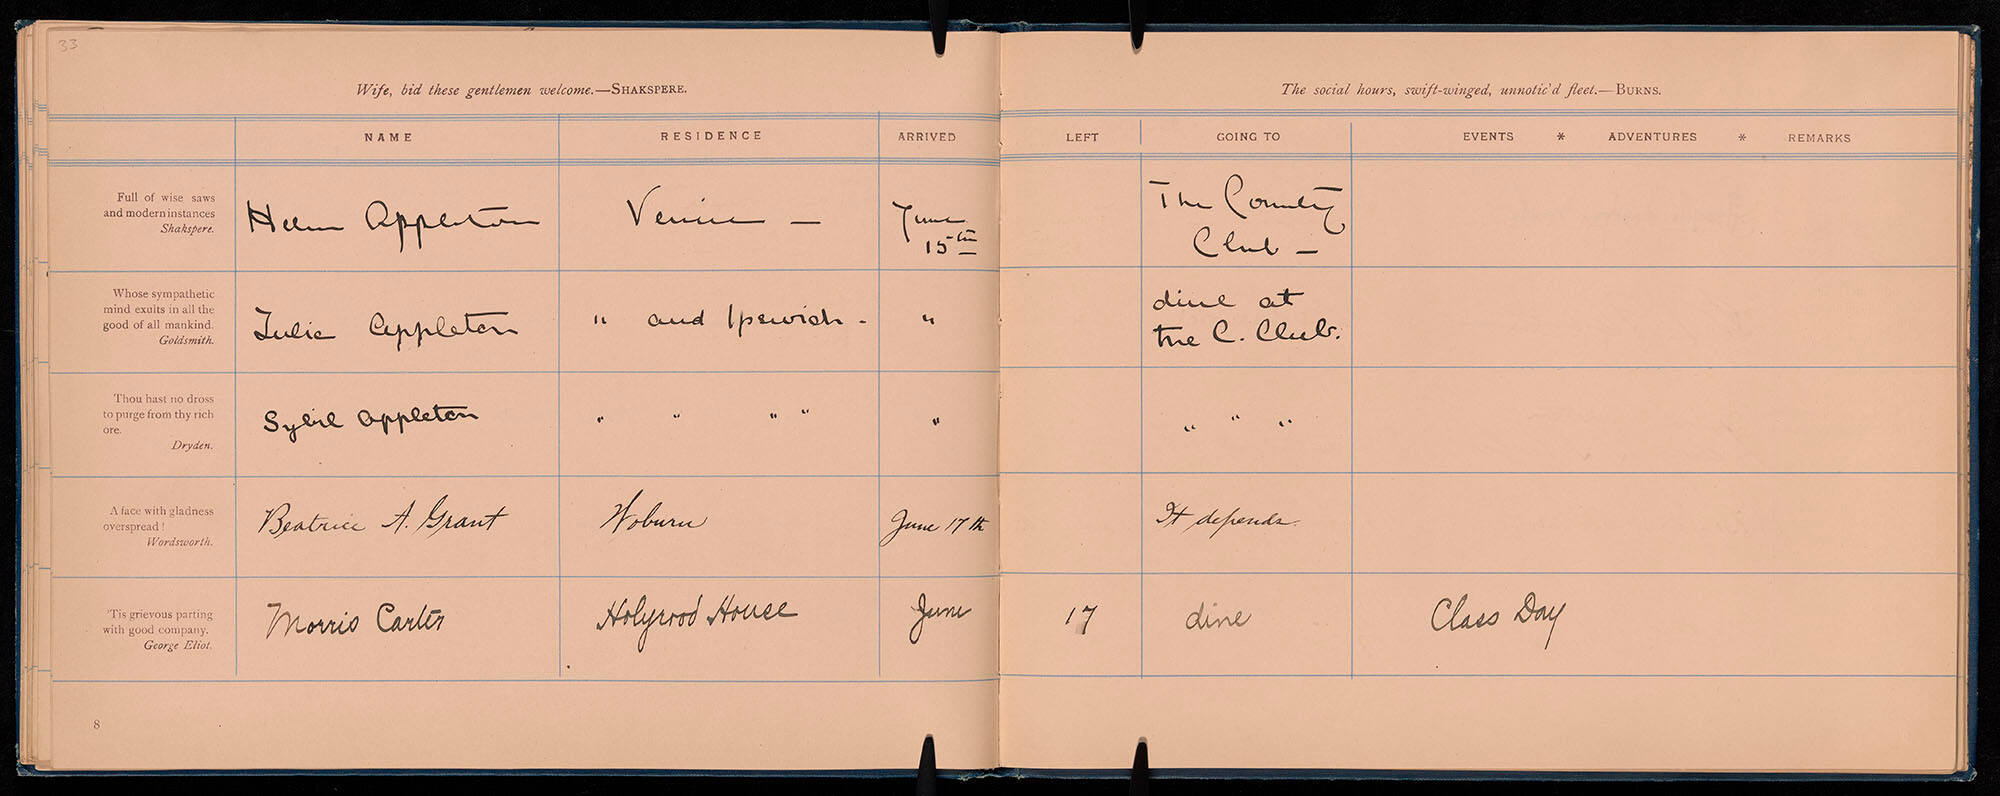 33
Wife, bid these gentlemen welcome.—SHAKSPERE.
The social hours, swift-winged, unnotic'd fleet.—BURNS.
NAME RESIDENCE ARRIVED LEFT GOING TO EVENTS * ADVENTURES * REMARKS
Full of wise saws
and modern instances
Shakspere.
Helen Appleton Venice — June
15th
The Country
Club —
Whose sympathetic
mind exults in all the
good of all mankind.
Goldsmith.
Julia Appleton " and Ipswich - "
dine at
the C. Club.
Thou hast no dross
to purge from thy rich
ore.
Dryden.
Sybil Appleton " " " " " " " "
A face with gladness
overspread!
Wordsworth.
Beatrice A. Grant Woburn June 17th It depends.
'Tis grievous parting
with good company.
George Eliot.
Morris Carter Holyrood House June 17 dine Class Day
8